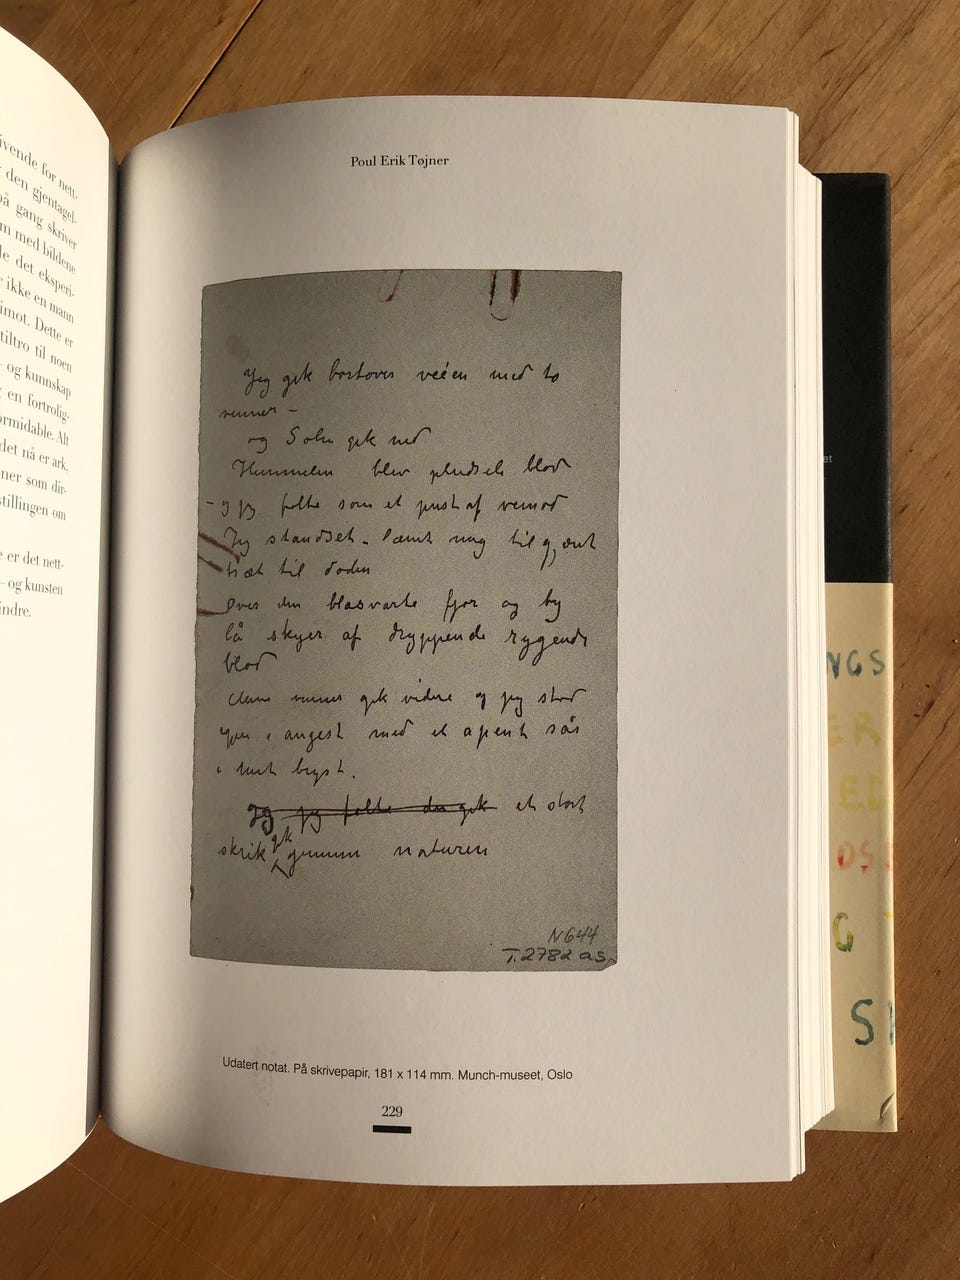 ivende for nett-
den gjentagel-
på gang skriver
m med bildene
le det eksperi-
r ikke en mann
imot. Dette er
tiltro til noen
– og kunnskap
g en fortrolig-
ormidable. Alt
det nå er ark,
ner som dir-
stillingen om
e er det nett-
– og kunsten
indre.
Poul Erik Tøjner
Jeg gik bortover veien med to
venner –
og Solen gik ned
Himmelen blev pludseli blod
– og jeg følte som et pust af vemod
Jeg standset – lænet mig til gjæret
træt til døden
over den blåsvarte fjor og by
lå skyer af dryppende rygende
blod
Mine venner gik videre og jeg stod
igjen i angest med et åpent sår
i mit bryst.
og jeg følte der gik et stort
skrik gik gennem naturen
N644
T. 2782 as
Udatert notat. På skrivepapir, 181 x 114 mm. Munch-museet, Oslo
229
et
NGS
ER
ED
OS
G
S